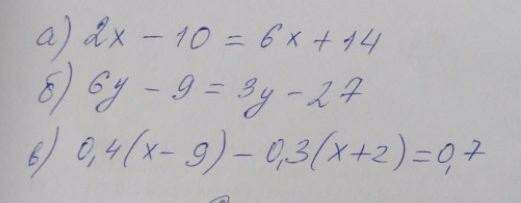 а) 2x - 10 = 6x + 14
б) 6y - 9 = 3y - 27
в) 0,4(x - 9) - 0,3(x + 2) = 0,7